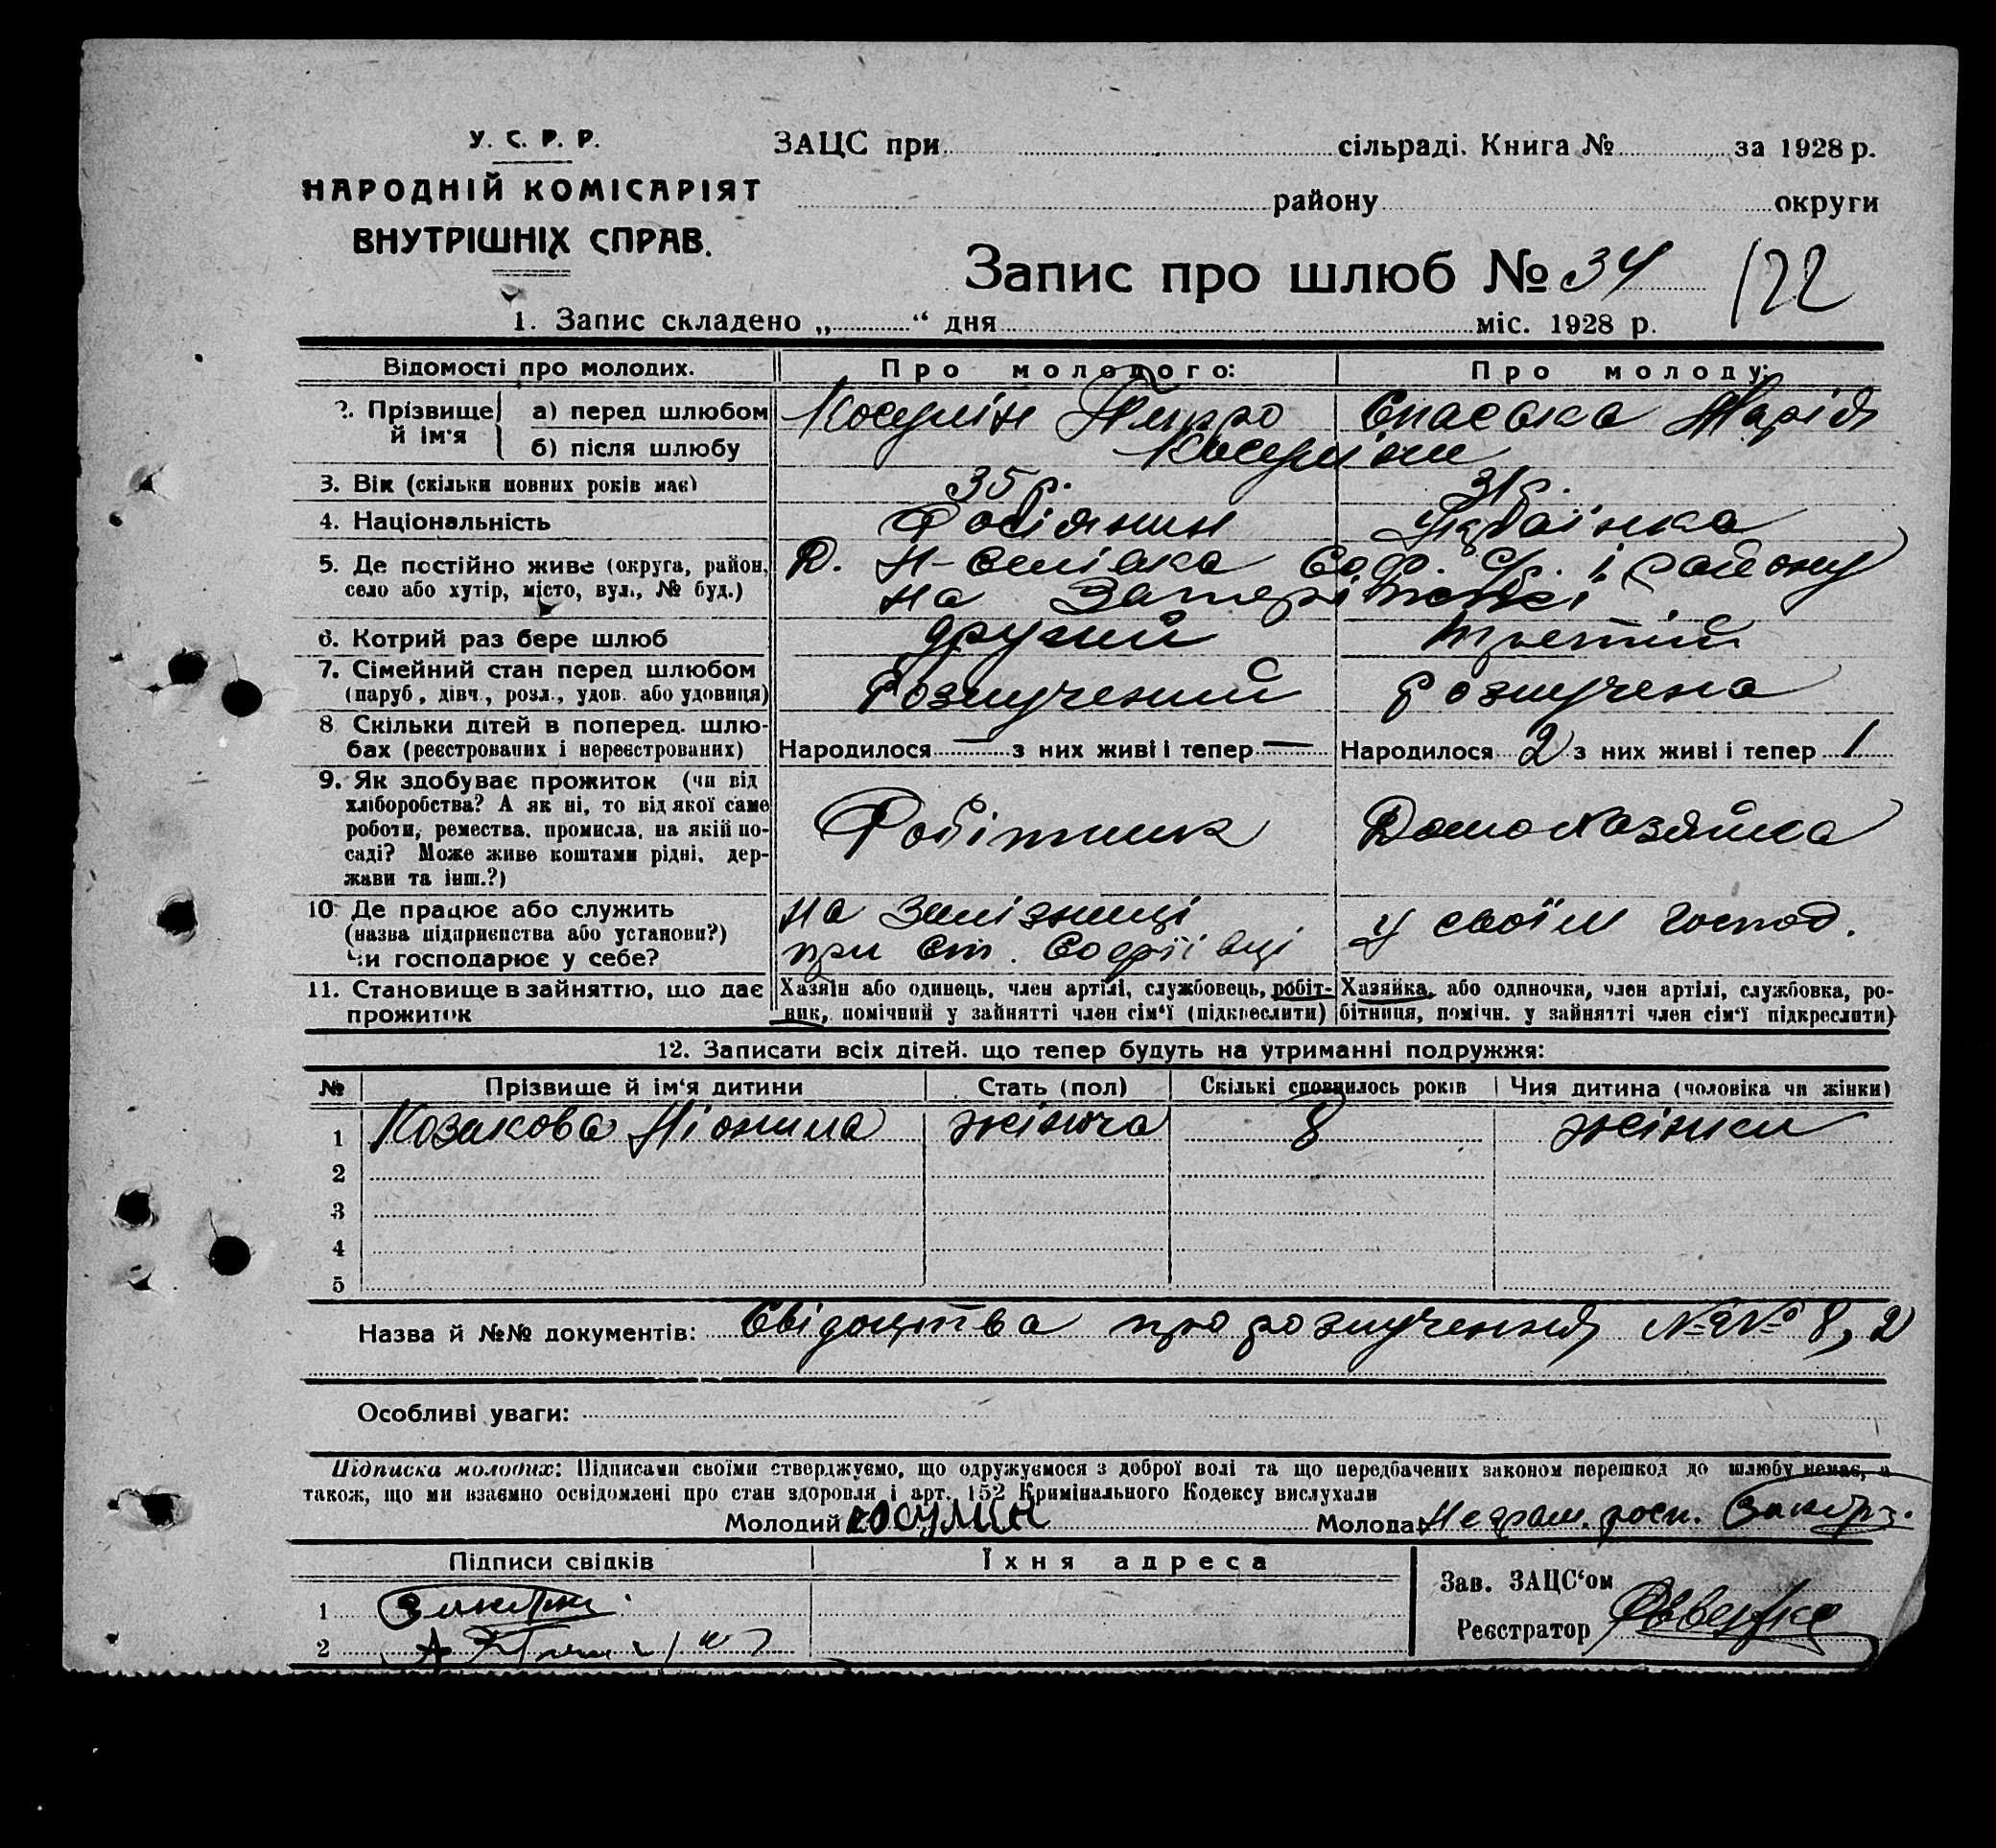 У. С. Р. Р.
НАРОДНІЙ КОМІСАРІЯТ
ВНУТРІШНІХ СПРАВ.
ЗАЦС при сільраді. Книга № за 1928 р.
району округи
Запис про шлюб № 34 122
1. Запис складено „ “ дня міс. 1928 р.
Відомості про молодих. Про молодого: Про молоду:
2. Прізвище й ім'я а) перед шлюбом Косумін Спаська Марія
б) після шлюбу
3. Вік (скільки повних років має) 35 р. 31 р.
4. Національність Росіянин Українка
5. Де постійно живе (округа, район, село або хутір, місто, вул., № буд.) Соф. с/р. і району
на
6. Котрий раз бере шлюб другий третій
7. Сімейний стан перед шлюбом
(паруб., дівч., розл., удов. або удовиця) Розлучений розлучена
8 Скільки дітей в поперед. шлю-
бах (реєстрованих і нереєстрованих) Народилося — з них живі і тепер — Народилося 2 з них живі і тепер 1
9. Як здобуває прожиток (чи від
хліборобства? А як ні, то від якої саме
роботи, ремества, промисла, на якій по-
саді? Може живе коштами рідні, дер-
жави та інш.?) Робітник Домохазяйка
10. Де працює або служить
(назва підприємства або установи?)
Чи господарює у себе? на залізниці
при ст. Софіївці у своїм господ.
11. Становище в зайняттю, що дає
прожиток Хазяїн або одинець, член артілі, службовець, робіт-
ник, помічний у зайнятті член сім'ї (підкреслити) Хазяйка, або одиночка, член артілі, службовка, ро-
бітниця, помічн. у зайнятті член сім'ї підкреслити)
12. Записати всіх дітей. що тепер будуть на утриманні подружжя:
№ Прізвище й ім'я дитини Стать (пол) Скількі сповнилось років Чия дитина (чоловіка чи жінки)
1 Козакова Ніонила жіноча 8 жінки
2
3
4
5
Назва й №№ документів: Свідоцтва про розлучення №№ 8, 2
Особливі уваги:
Підписка молодих: Підписами своїми стверджуємо, що одружуємося з доброї волі та що передбачених законом перешкод до шлюбу немає, а
також, що ми взаємно освідомлені про стан здоровля і арт. 152 Кримінального Кодексу вислухали
Молодий Косумін Молода Неграм. росп.
Підписи свідків Їхня адреса
Зав. ЗАЦС'ом
1
Реєстратор
2